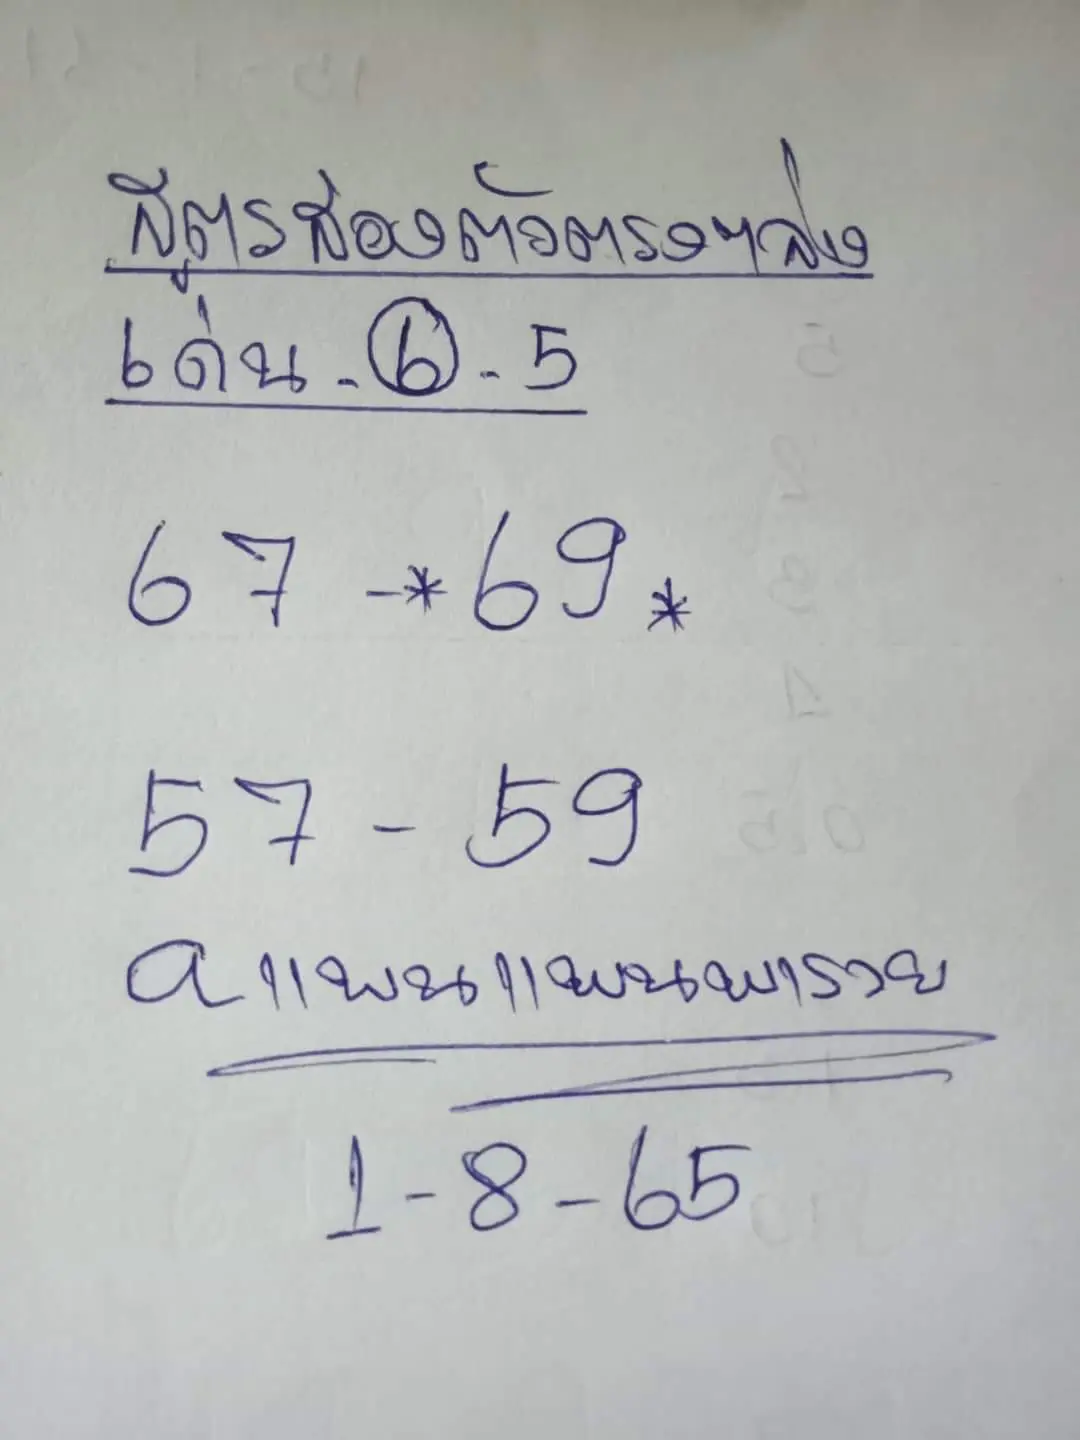 สูตรสองตัวตรงๆล่าง
เด่น - 6 - 5
67 - *69*
57 - 59
a แพนแพนพารวย
1-8-65